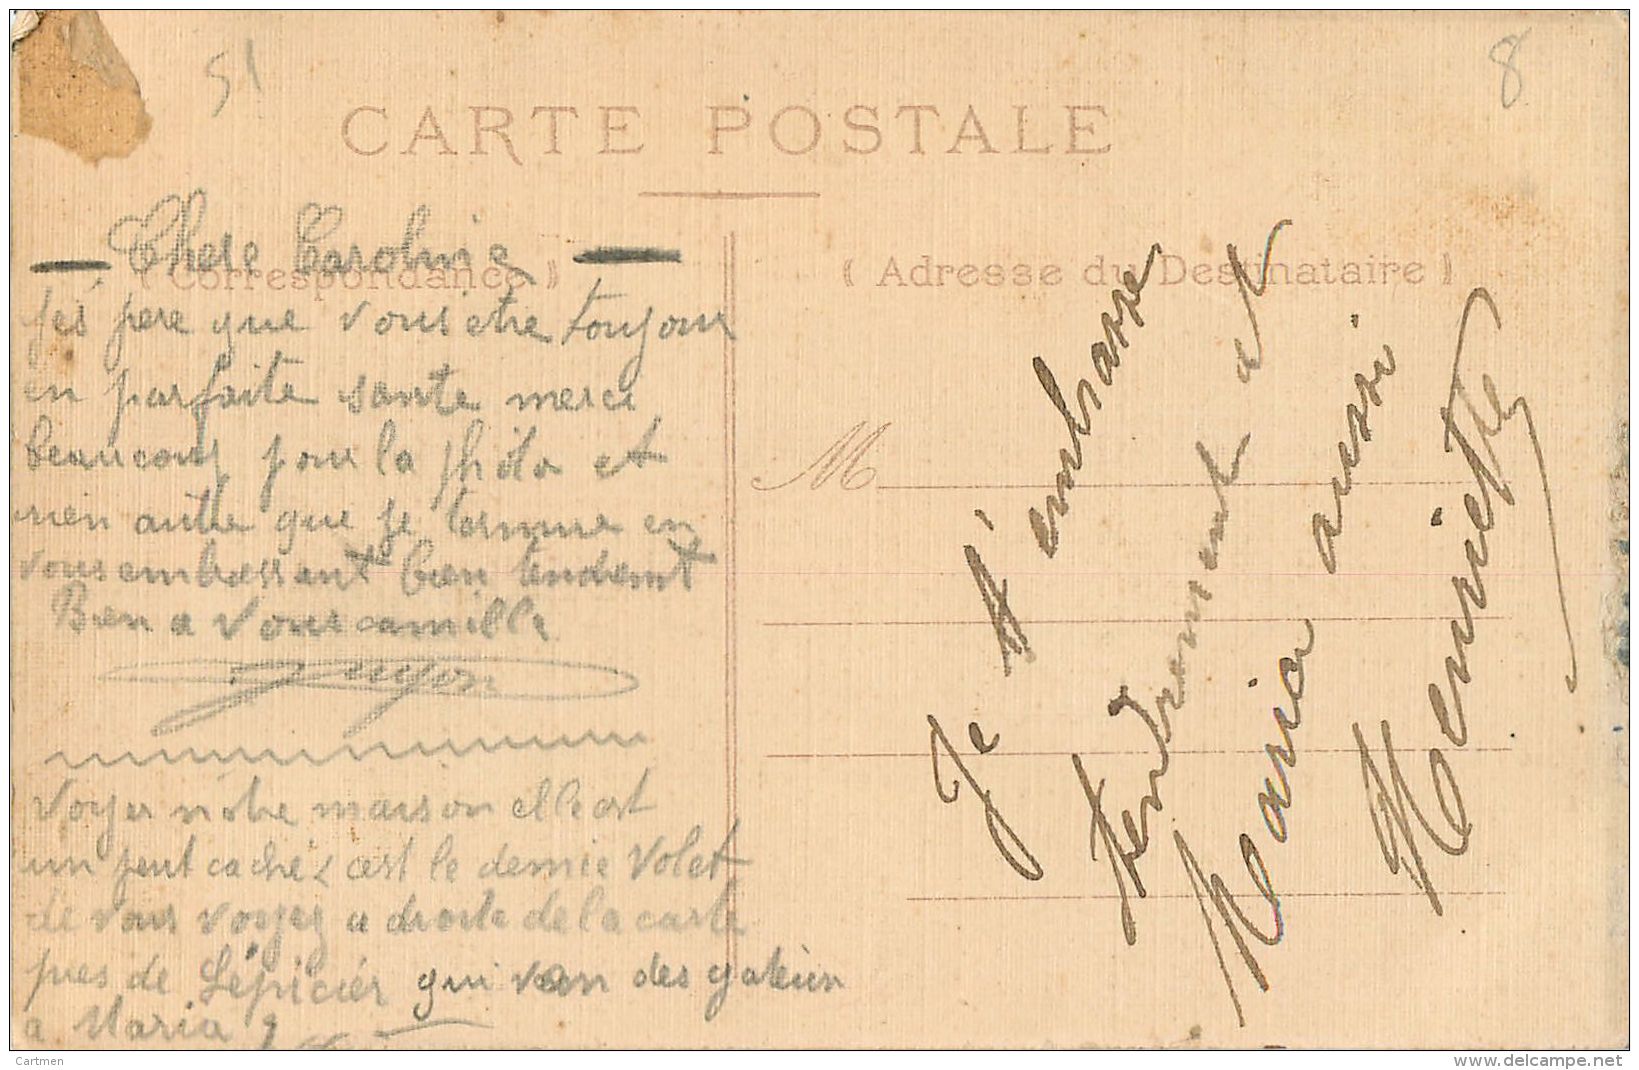 51
8
CARTE POSTALE
Chere Caroline
( Correspondance )
( Adresse du Destinataire )
Jes pere que vous etre toujour
en parfaite sante merci
beaucoup pour la photo et
rien autre que je termine en
vous embrassant bien tendremt
Bien a vous camille
M
Voyer notre maison elle est
un peut caché c'est le dernie volet
de vous voyez a droite de la carte
pres de L'épicier qui von des gateun
a Maria
Je t'embrasse
tendrement et
Maria aussi
Henriette
Cartmen
www.delcampe.net